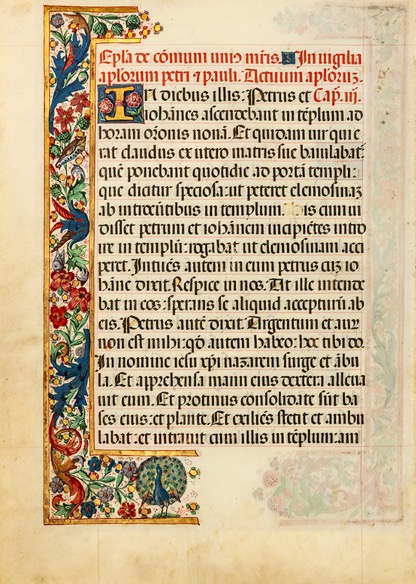 Epla de cõmuni uniꝰ mr̃is. In uigilia
aplorum petri ⁊ pauli. Actuum aplorũ.
In diebus illis: Petrus et Cap. iij.
iohãnes ascendebant in tẽplum ad
horam or̃onis nonã. Et quidam uir qui e
rat claudus ex utero matris sue baiulabat᷑:
quẽ ponebant quotidie ad portã templi:
que dicitur speciosa: ut peteret elemosinaʒ
ab introeũtibus in templum. is cum ui
disset petrum et iohãnem incipiẽtes intro
ire in templũ: rogabat ut elemosinam acci
peret. Intuẽs autem in eum petrus cũ io
hãne dixit. Respice in nos. At ille intende
bat in eos: sperans se aliquid accepturũ ab
eis. Petrus autẽ dixit. Argentum et aur
non est mihi: qđ autem habeo: hoc tibi do.
In nomine iesu xp̃i nazareni surge et ãbu
la. Et apprehensa manu eius dextera alleua
uit eum. Et protinus consolidate sũt ba
ses eius: et plante. Et exiliẽs stetit et ambu
labat: et intrauit cum illis in tẽplum: am